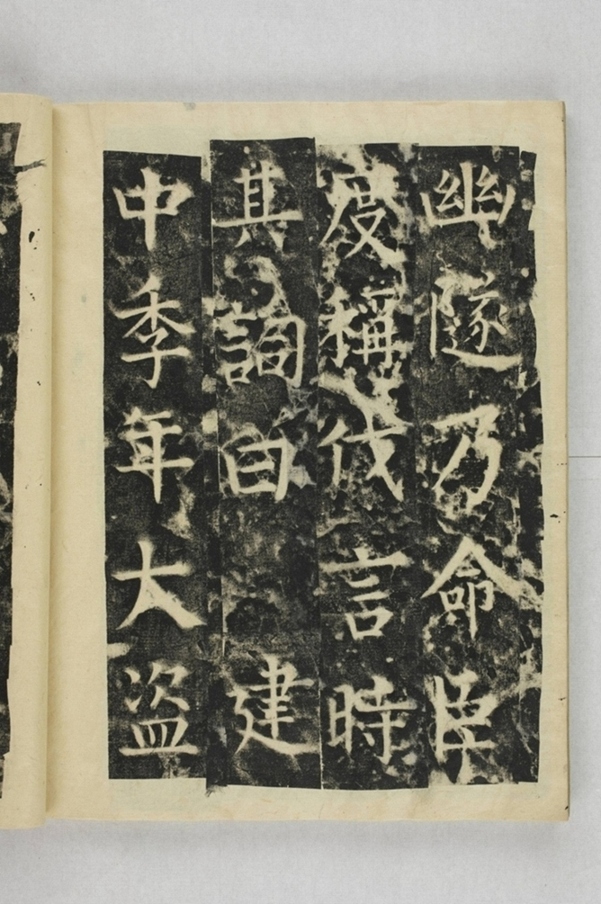 幽隧乃命臣
度稱伐言時
其詞曰建
中季年大盜